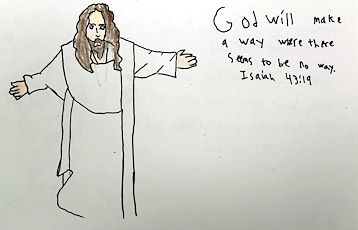 God will make
a way where there
seems to be no way.
Isaiah 43:19